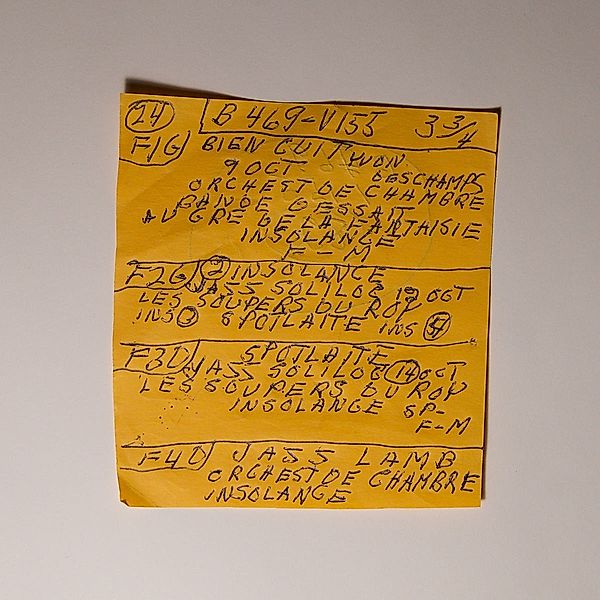 14 B 469-V155 3 3/4
F1G BIEN CUIT YVON
9 OCT DESCHAMPS
ORCHEST DE CHAMBRE
BANDE DESSAIT
AU GRE DE LA FANTAISIE
INSOLANGE
F-M
F2G 2 INSOLANGE
JASS SOLILOC 12 OCT
LES SOUPERS DU ROY
INS SPOTLAITE INS 4
F3D SPOTLAITE
JASS SOLILOC 14 OCT
LES SOUPERS DU ROY
INSOLANGE SP-
F-M
F4D JASS LAMB
ORCHEST DE CHAMBRE
INSOLANGE